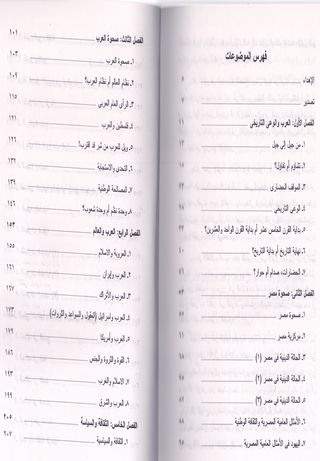 فهرس الموضوعات
الإهداء ٥
تصدير ٧
الفصل الأول: العرب والوعي التاريخي ١١
١. من جيل إلى جيل
٢. تشاؤم أم تفاؤل؟ ١٨
٣. الموقف الحضارى ٢٣
٤. الوعي التاريخي ٢٨
٥. بداية القرن الخامس عشر أم بداية القرن الواحد والعشرين؟ ٣٣
٦. نهاية التاريخ أم بداية التاريخ؟ ٤٠
٧. الحضارات، صدام أم حوار؟ ٤٦
الفصل الثاني: صحوة مصر ٥٣
١. صحوة مصر ٥٥
٢. مركزية مصر
٣. الحالة الدينية في مصر (١) ٦٨
٤. الحالة الدينية في مصر (٢)
٥. الحالة الدينية في مصر (٣) ٨٢
٦. الأمثال العامية المصرية والثقافة الوطنية ٨٨
٧. اليهود في الأمثال العامية المصرية ٩٥
الفصل الثالث: صحوة العرب ١٠١
١. صحوة العرب ١٠٣
٢. نظام العالم أم نظام العرب؟ ١٠٩
٣. الرأى العام العربى ١١٥
٤. فلسطين والعرب ١٢١
٥. ويل للعرب من شر قد اقترب؟ ١٢٧
٦. التحدى والاستجابة ١٣٢
٧. المصالحة الوطنية ١٣٩
٨. وحدة نظم أم وحدة شعوب؟ ١٤٦
الفصل الرابع: العرب والعالم ١٥٣
١. العروبة والإسلام ١٥٥
٢. العرب وإيران ١٦١
٣. العرب والأتراك ١٦٧
٤. العرب وإسرائيل (العقول والسواعد والثروات) ١٧٣
٥. العرب وأمريكا ١٧٩
٦. القوة والثروة والجنس ١٨٦
٧. الاسلام والغرب ١٩٣
٨. العرب والشرق ١٩٩
الفصل الخامس: الثقافة والسياسة ٢٠٥
١. الثقافة والسياسية ٢٠٧